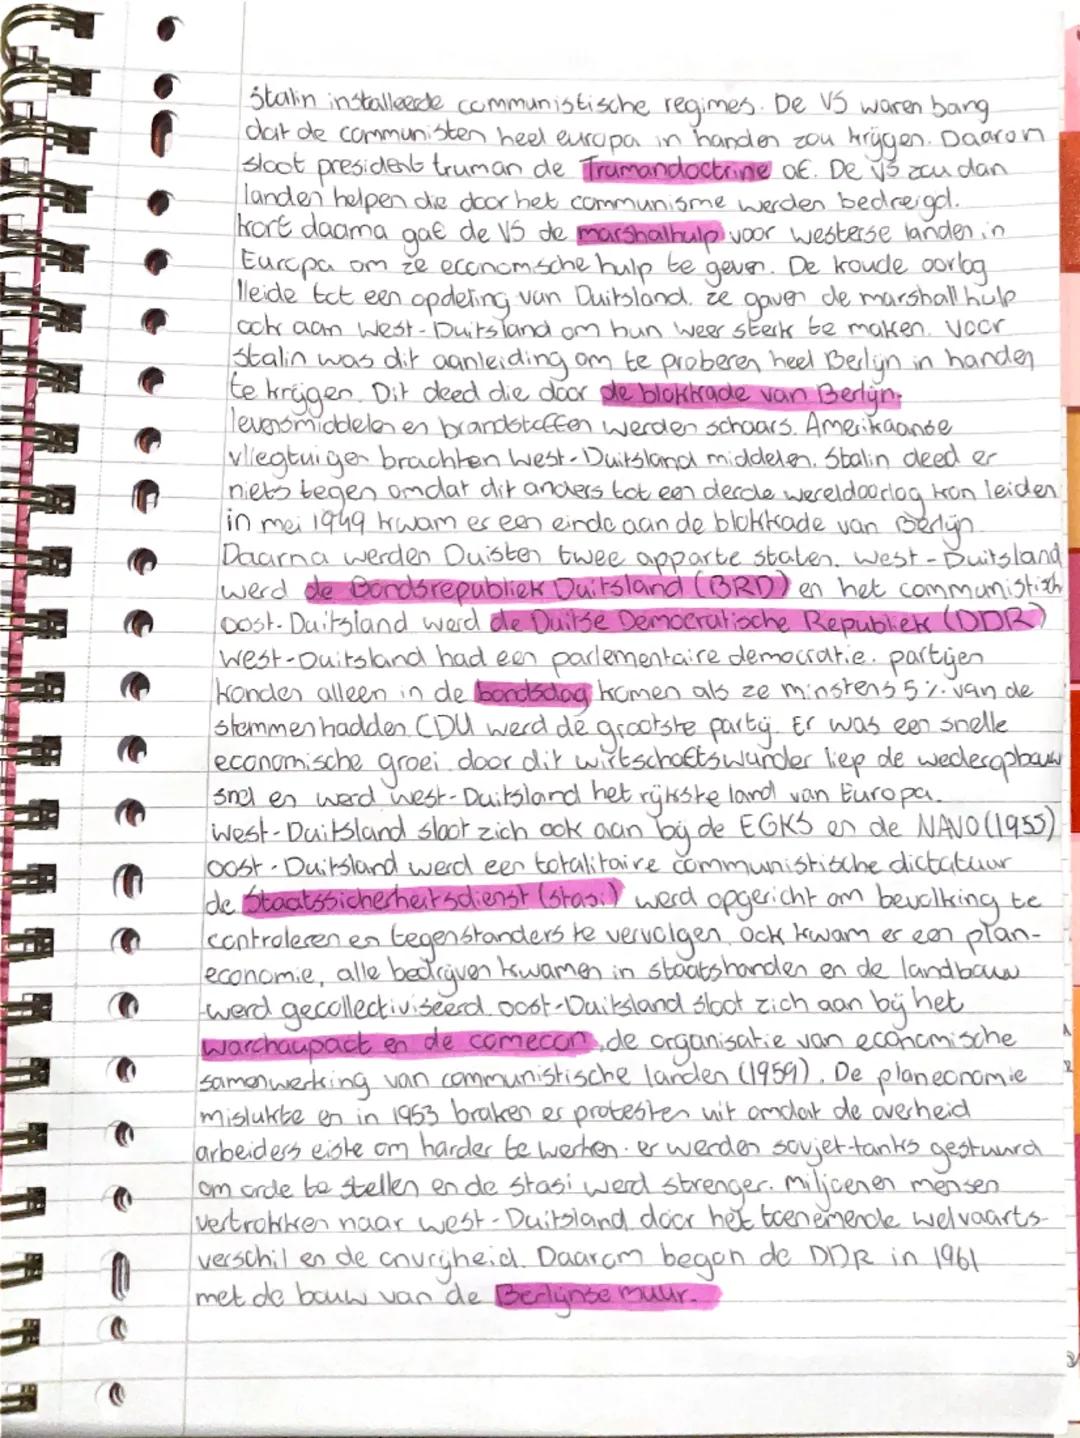 Stalin installeerde communistische regimes. De VS waren bang
dat de communisten heel europa in handen zou krijgen. Daarom
sloot president truman de Trumandoctrine af. De VS zou dan
landen helpen die door het communisme werden bedreigd.
kort daarna gaf de VS de marshalhulp voor westerse landen in
Europa om ze economische hulp te geven. De koude oorlog
lleide tot een opdeling van Duitsland. ze gaven de marshall hulp
ook aan West-Duitsland om hun weer sterk te maken. Voor
Stalin was dit aanleiding om te proberen heel Berlijn in handen
te krijgen. Dit deed die door de blokkade van Berlijn.
levensmiddelen en brandstoffen werden schaars. Amerikaanse
vliegtuigen brachten West-Duitsland middelen. Stalin deed er
niets tegen omdat dit anders tot een derde wereldoorlog kon leiden
in mei 1949 kwam er een einde aan de blokkade van Berlijn
Daarna werden Duisten twee apparte staten. West-Duitsland
werd de Bondsrepubliek Duitsland (BRD) en het communistisch
oost-Duitsland werd de Duitse Democratische Republiek (DDR)
West-Duitsland had een parlementaire democratie. partijen
konden alleen in de bondsdag komen als ze minstens 5% van de
stemmen hadden. CDU werd de grootste partij. Er was een snelle
economische groei. door dit wirtschaftswunder liep de wederopbouw
snel en werd West-Duitsland het rijkste land van Europa.
West-Duitsland sloot zich ook aan bij de EGKS en de NAVO (1955)
oost-Duitsland werd een totalitaire communistische dictatuur
de Staatssicherheitsdienst (stasi) werd opgericht om bevolking te
controleren en tegenstanders te vervolgen. ook kwam er een plan-
economie, alle bedrijven kwamen in staatshanden en de landbouw
werd gecollectiviseerd. oost-Duitsland sloot zich aan bij het
warchaupact en de comecon, de organisatie van economische
samenwerking van communistische landen (1959). De planeonomie
mislukte en in 1953 braken er protesten uit omdat de overheid
arbeiders eiste om harder te werken. er werden sovjet-tanks gestuurd
om orde te stellen en de stasi werd strenger. miljoenen mensen
vertrokken naar west-Duitsland door het toenemende welvaarts-
verschil en de onvrijheid. Daarom begon de DDR in 1961
met de bouw van de Berlijnse muur.